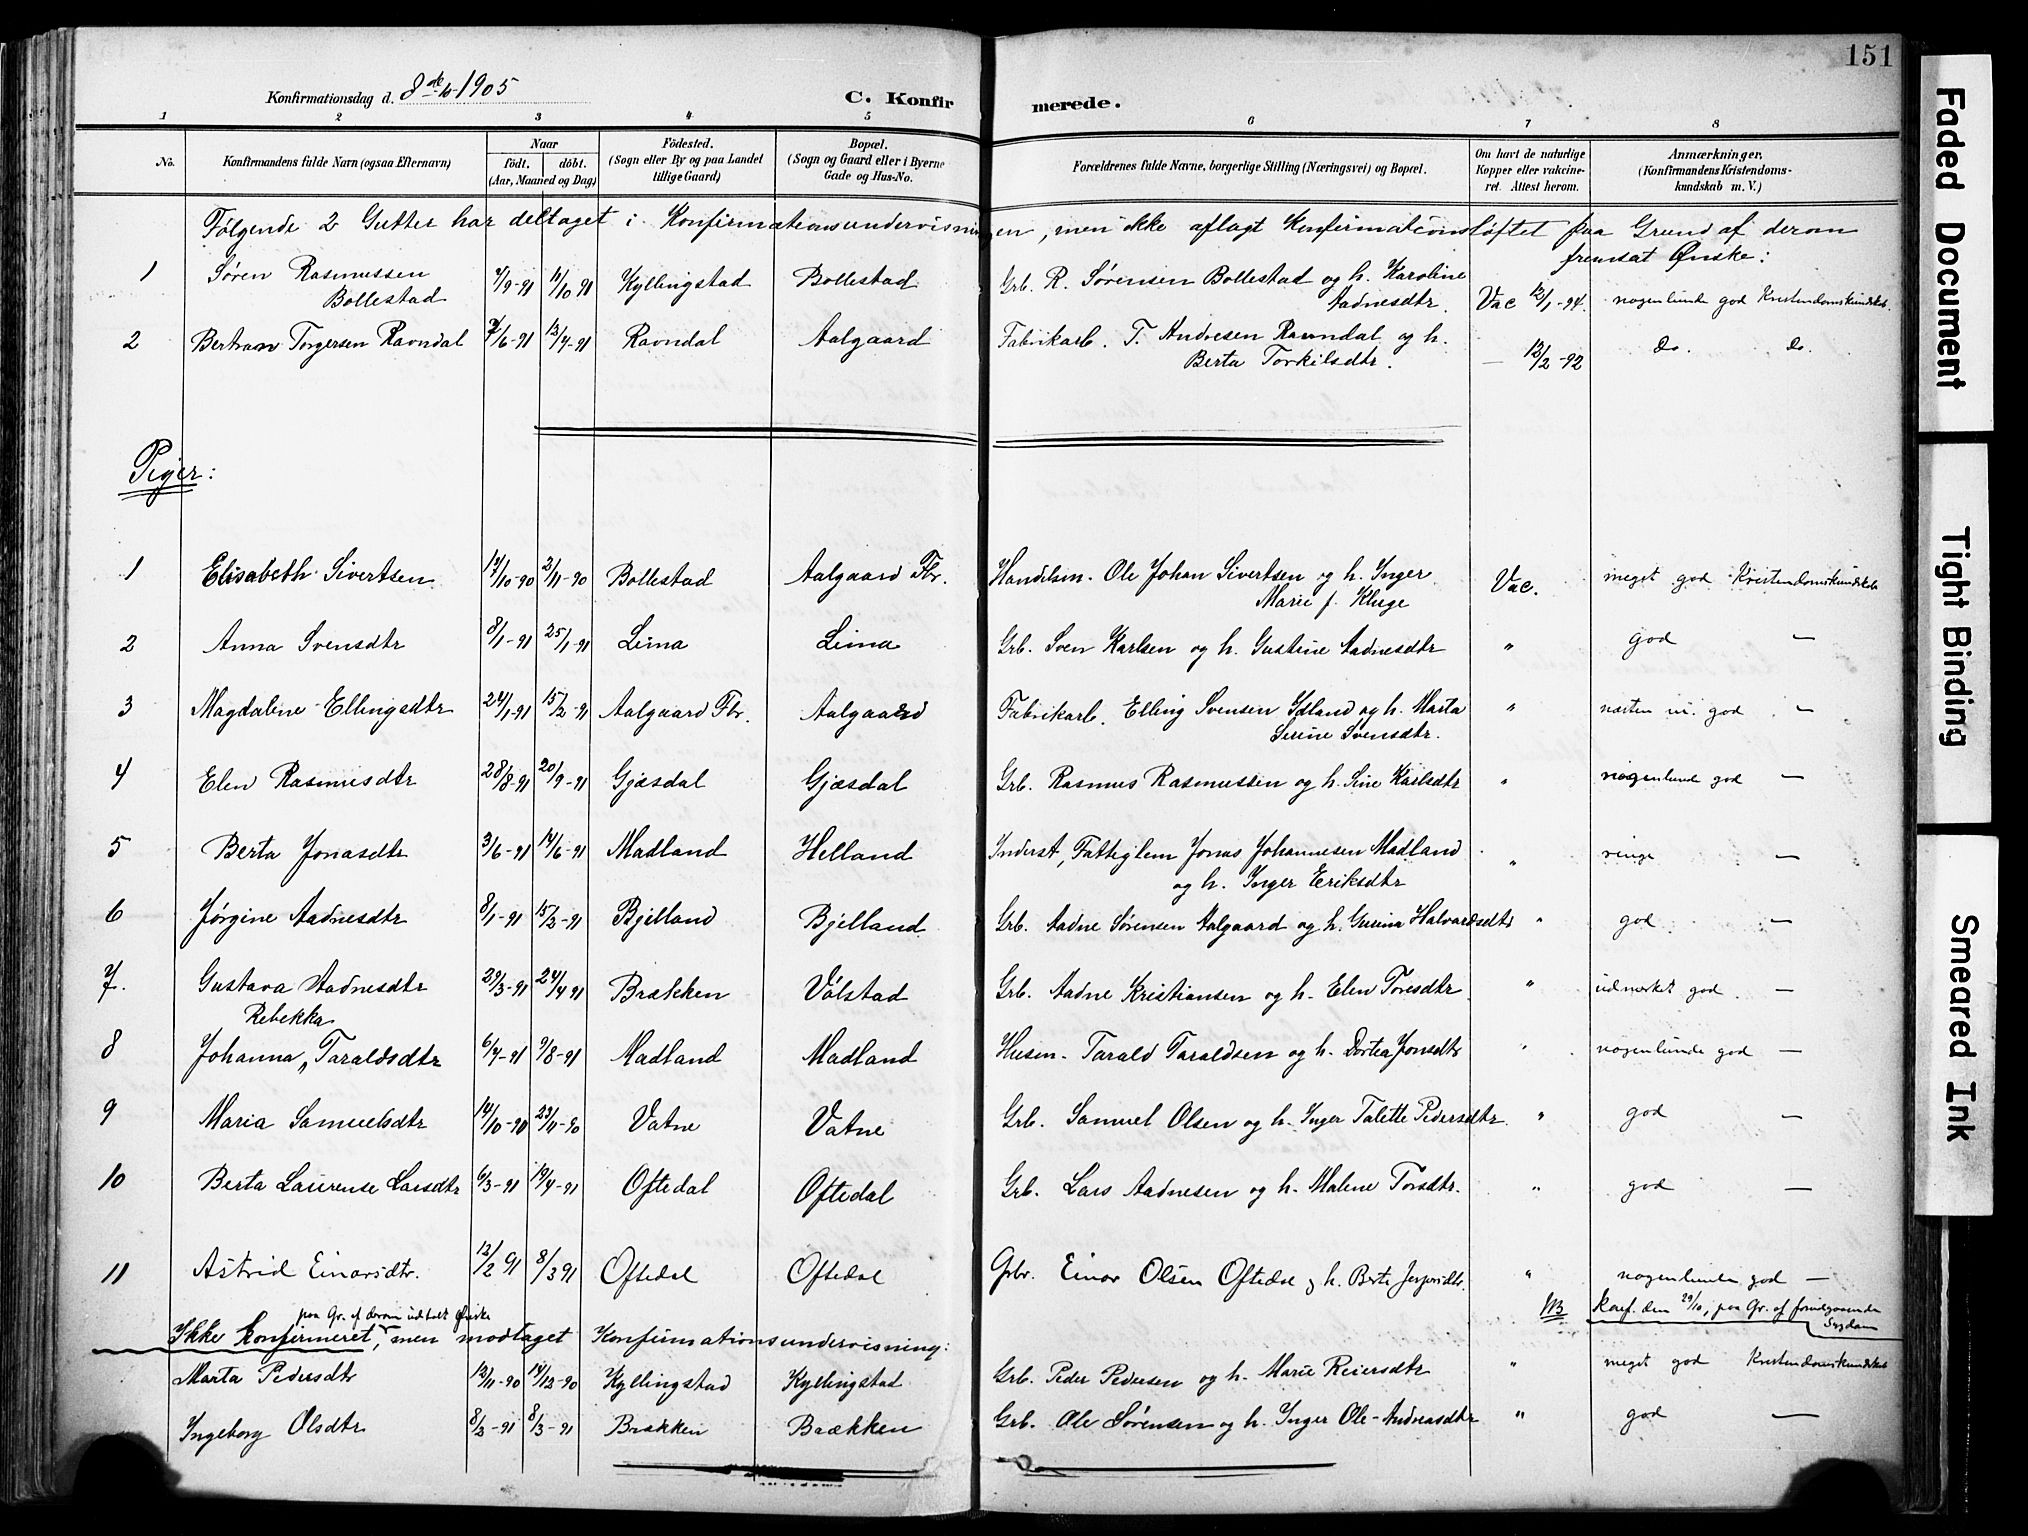 151
Konfirmationsdag d. 8de/10 1905
C. Konfirmerede.
1 2 3 4 5 6 7 8
No. Konfirmandens fulde Navn (ogsaa Efternavn) Naar født. døbt. (Aar, Maaned og Dag) Födested. (Sogn eller By og paa Landet tillige Gaard) Bopæl. (Sogn og Gaard eller i Byerne Gade og Hus-No. Forældrenes fulde Navne, borgerlige Stilling (Næringsvei) og Bopæl. Om havt de naturlige Kopper eller vakcineret. Attest herom. Anmærkninger. (Konfirmandens Kristendomskundskab m. V.)
Følgende 2 Gutter har deltaget i Konfirmationsundervisningen, men ikke aflagt Konfirmationsløftet paa Grund af derom
fremsat Ønske:
1 Søren Rasmussen Bollestad /9-91 11/10 91 Kyllingstad Bollestad Grb. R. Sørensen Bollestad og h. Karoline Aadnesdtr. Vac 12/1-94. nogenlunde god Kristendomskundskab.
2 Bertram Torgersen Ravndal 7/6-91 13/7-91 Ravndal Aalgaard Fabrikarb. T. Andresen Ravndal og h. Berta Torkilsdtr. — 12/2-92 do. do.
Piger:
1 Elisabeth Sivertsen 17/10-90 2/11-90 Bollestad Aalgaard Fbr. Handelsm. Ole Johan Sivertsen og h. Inger Marie f. Kluge Vac. meget god Kristendomskundskab
2 Anna Svensdtr 8/1-91 25/1-91 Lima Lima Grb. Sven Karlsen og h. Gustine Aadnesdtr " god —
3 Magdalene Ellingsdtr 24/1-91 15/2-91 Aalgaard Fbr. Aalgaard Fabrikarb. Elling Svensen Ydland og h. Marta Serine Svensdtr. " næsten m. god —
4 Elen Rasmusdtr 28/8-91 20/9-91 Gjæsdal Gjæsdal Grb. Rasmus Rasmussen og h. Sine Karlsdtr " nogenlunde god —
5 Berta Jonasdtr 3/6-91 14/6-91 Madland Helland Inderst, Fattiglem Jonas Johannesen Madland og h. Inger Eriksdtr " ringe —
6 Jørgine Aadnesdtr 8/1-91 15/2-91 Bjelland Bjelland Grb. Aadne Sørensen Aalgaard og h. Gurina Halvardsdtr " god —
7. Gustava Aadnesdtr 29/3-91 24/4 91 Brækken Valstad Grb. Aadne Kristiansen og h. Elen Toresdtr " udmerket god. —
8 Johanna Rebekka Taraldsdtr 6/7-91 9/8-91 Madland Madland Husm. Tarald Taraldsen og h. Dortea Jonsdtr " nogenlunde god —
9 Maria Samuelsdtr 14/10-90 23/11-90 Vatne Vatne Grb. Samuel Olsen og h. Inger Talette Pedersdtr. " god —
10 Berta Laurense Larsdtr 6/3-91 19/4-91 Oftedal Oftedal Grb. Lars Aadnesen og h. Malene Torsdtr. " god —
11 Astrid Einarsdtr. 12/2 91 8/3 91 Oftedal Oftedal Gbr. Einar Olsen Oftedal og h. Berte Jespersdtr. " nogenlunde god —
NB Konf. den 29/10, paa Gr. af foregaaende Sygdom
Ikke konfirmeret, paa Gr. af derom udtalt Ønske men modtaget Konfirmationsundervisning:
Marta Pedersdtr 12/11-90 14/12-90 Kyllingstad Kyllingstad Grb. Peder Pedersen og h. Marie Reiersdtr " meget god Kristendomskundskab
Ingeborg Olsdtr 8/2-91 8/3-91 Brækken Brækken Grb. Ole Sørensen og h. Inger Ole-Andreasdtr " god —
Faded Document
Tight Binding
Smeared Ink